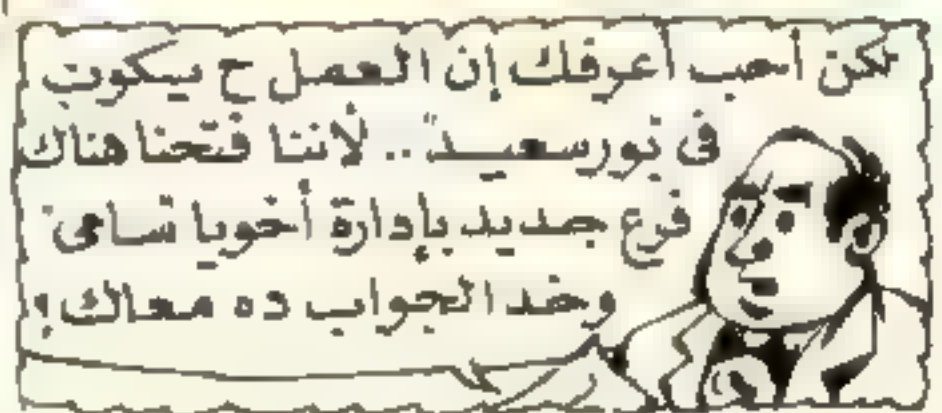 لكن أحب أعرفك إن العمل ح يبكون
فى بورسعيد" .. لأننا فتحنا هناك
فرع جديد بإدارة أخويا سامى
وخد الجواب ده معاك !